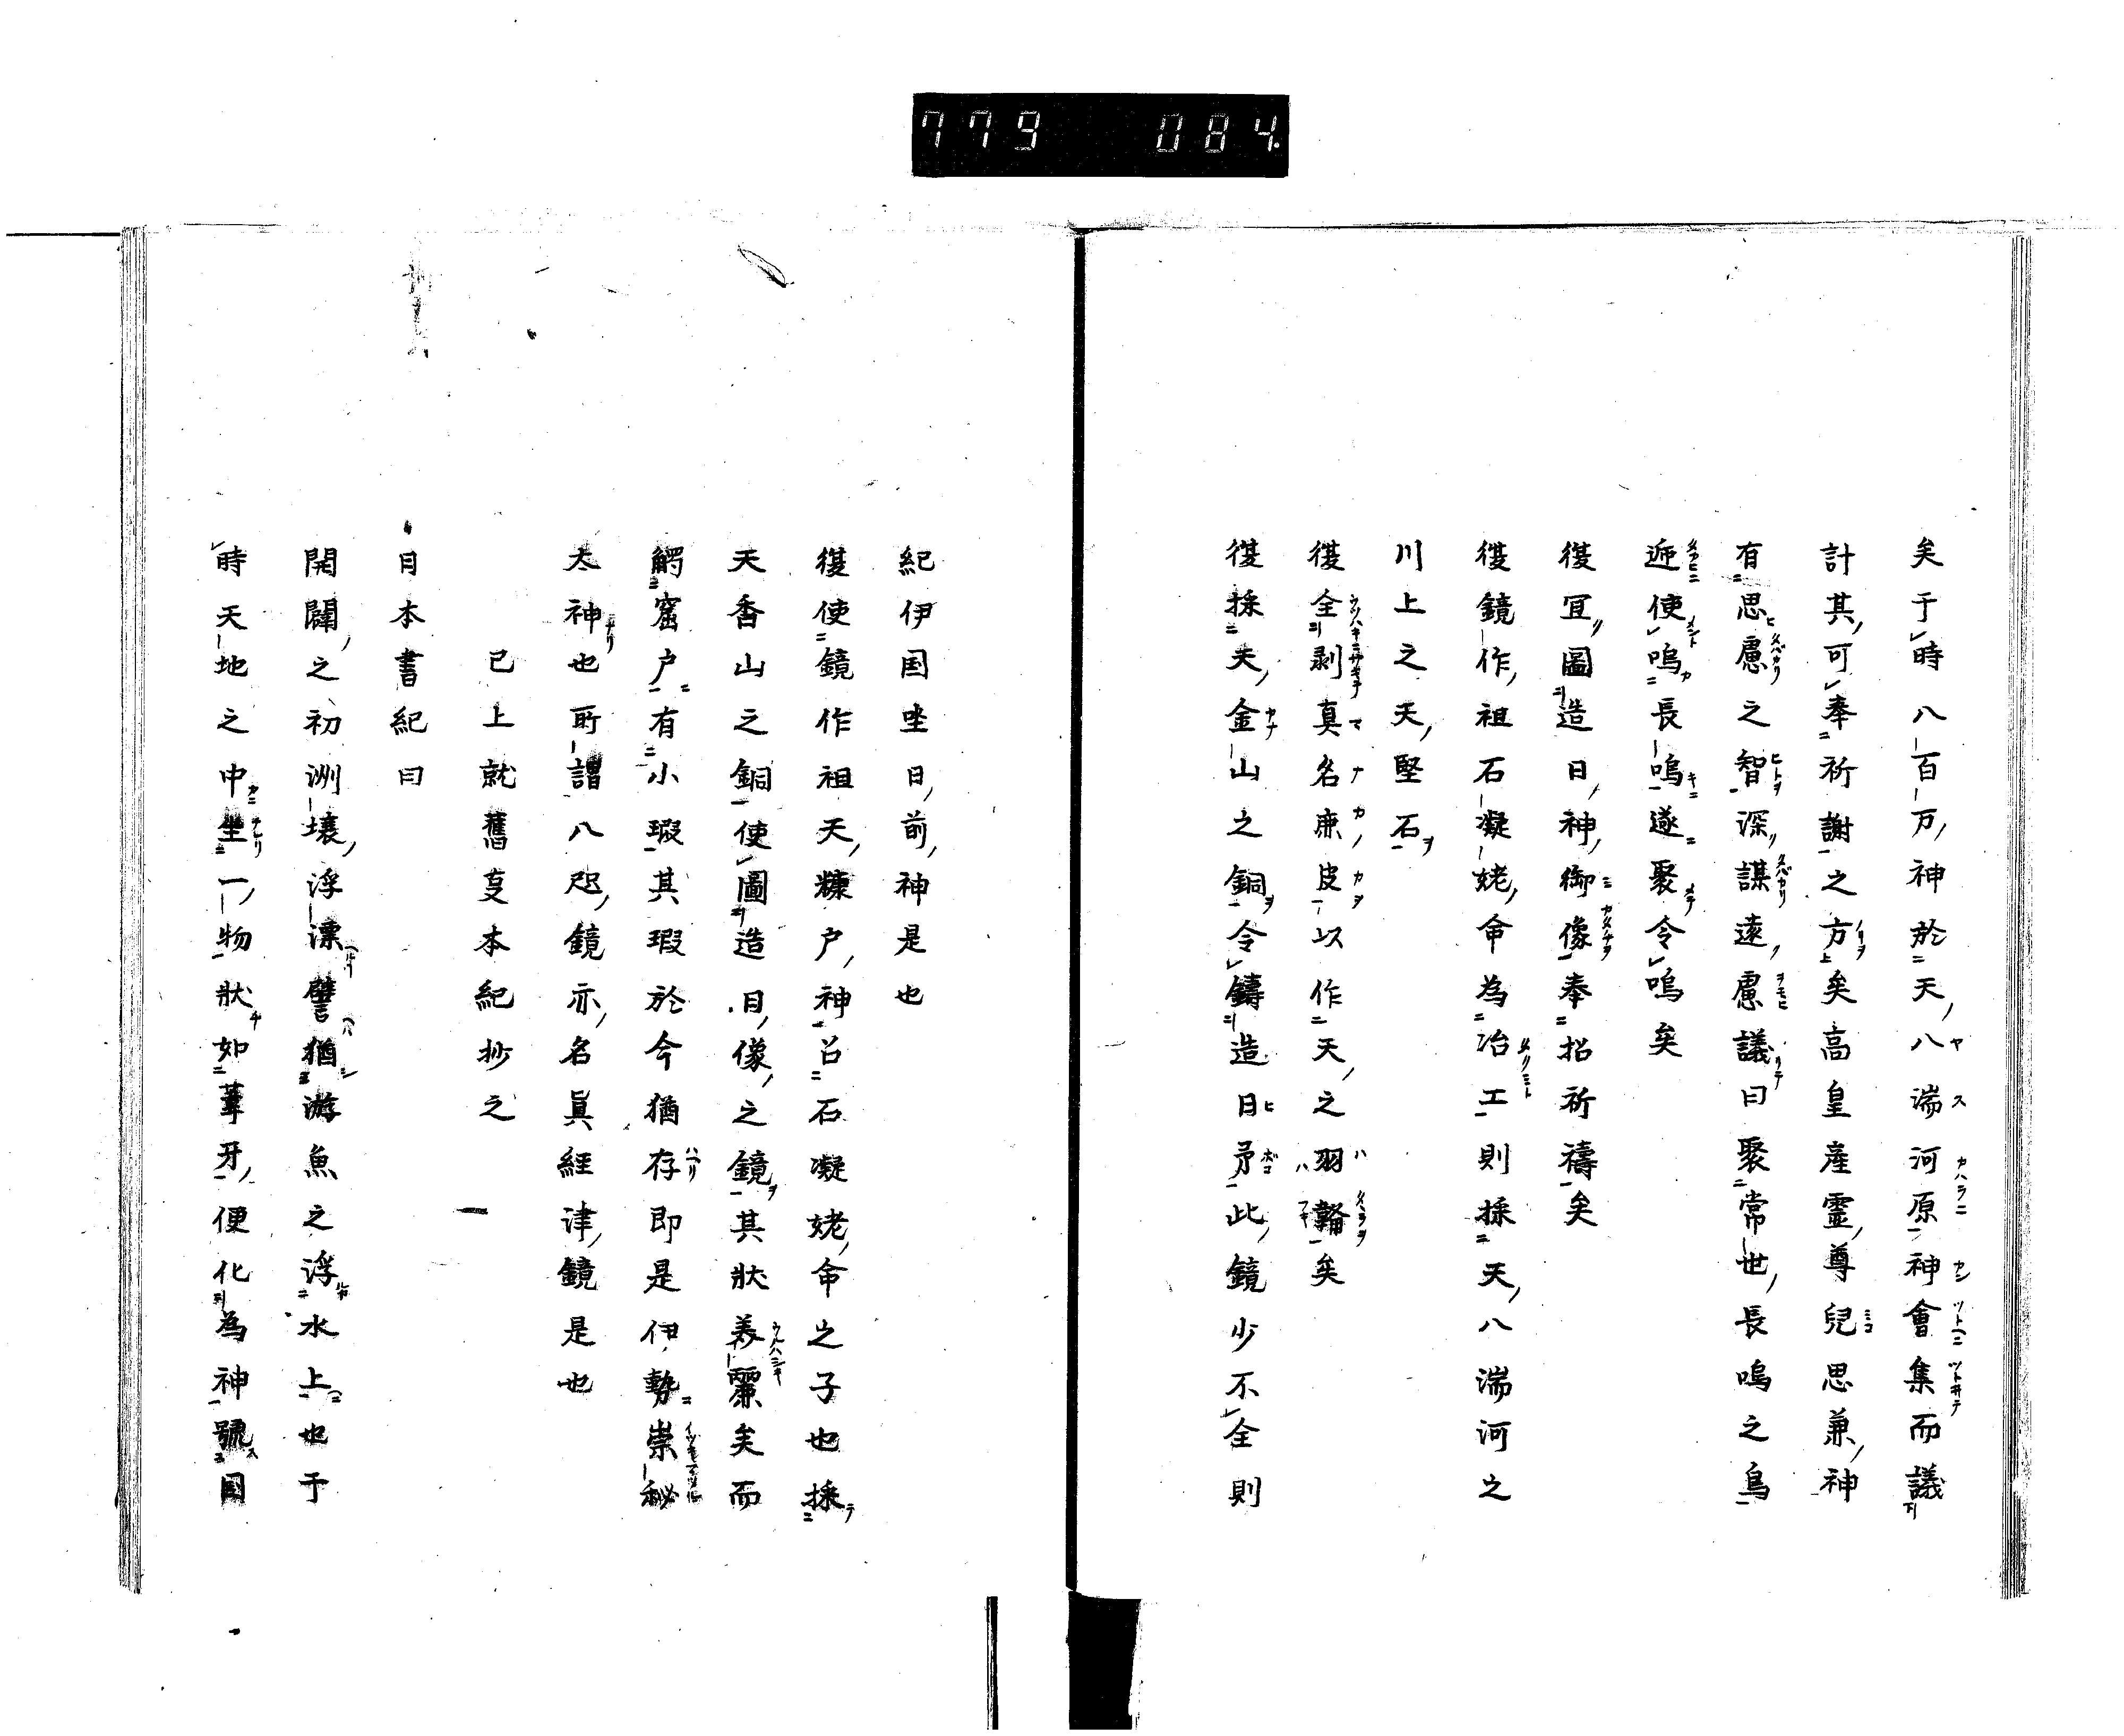 779 084
矣于時八百万神於天八湍河原神會集而議
計其可奉祈謝之方矣高皇産霊尊兒思兼神
有思慮之智深謀遠慮議曰聚常世長鳴之鳥
迊使鳴長鳴遂聚令鳴矣
復冝圖造日神御像奉招祈禱矣
復鏡作祖石凝姥命為冶工則採天八湍河之
川上之天堅石
復全剥真名鹿皮以作天之羽鞴矣
復採天金山之銅令鑄造日矛此鏡少不全則
紀伊国坐日前神是也
復使鏡作祖天糠戸神石凝姥命之子也採
天香山之銅使圖造日像之鏡其狀美麗矣而
觸窟戸有小瑕其瑕於今猶存即是伊勢崇秘
大神也所謂八咫鏡亦名眞經津鏡是也
已上就舊亊本紀抄之
日本書紀曰
開闢之初洲壤浮漂譬猶游魚之浮水上也于
時天地之中坐一物狀如葦牙便化為神號国